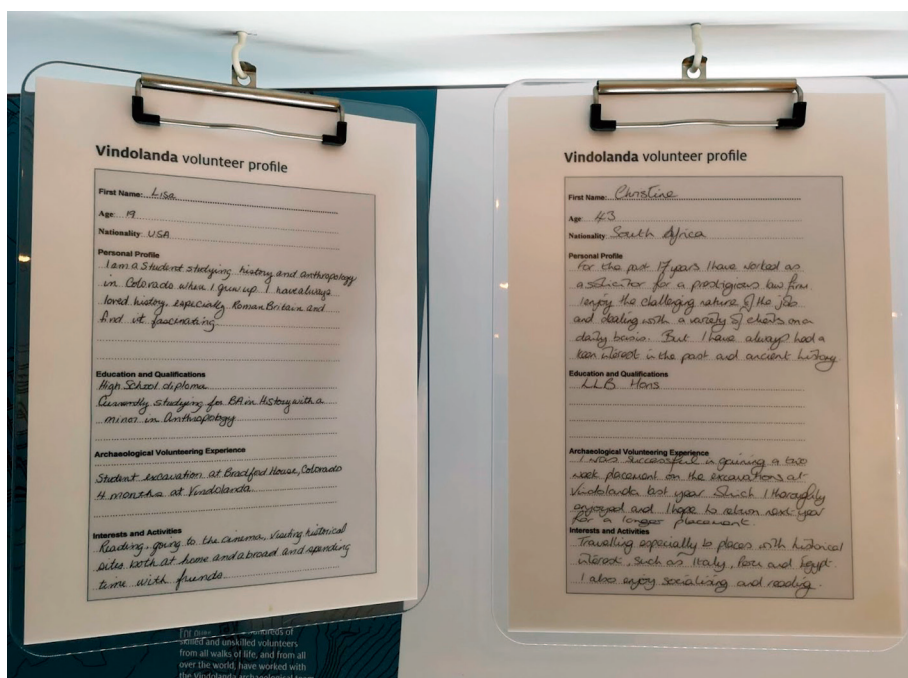 Vindolanda volunteer profile
First Name: Lisa
Age 19
Nationality USA
Personal Profile
I am a Student studying history and anthropology
in Colorado where I grew up I have always
loved history, especially Roman Britain and
find it fascinating
Education and Qualifications
High School diploma
Currently studying for BA in History with a
minor in Anthropology
Archaeological Volunteering Experience
Student excavation at Bradford House, Colorado
4 months at Vindolanda
Interests and Activities
Reading, going to the cinema, visiting historical
sites both at home and abroad and spending
time with friends.
Vindolanda volunteer profile
First Name: Christine
Age 43
Nationality South Africa
Personal Profile
For the past 17 years I have worked as
a solicitor for a prestigious law firm
I enjoy the challenging nature of the job
and dealing with a variety of clients on a
daily basis. But I have always had a
keen interest in the past and ancient history
Education and Qualifications
LLB Hons
Archaeological Volunteering Experience
I was successful in gaining a two
week placement on the excavations at
Vindolanda last year which I thoroughly
enjoyed and I hope to return next year
for a longer placement.
Interests and Activities
Travelling especially to places with historical
interest, such as Italy, Peru and Egypt.
I also enjoy socialising and reading.
hundreds of
skilled and unskilled volunteers
from all walks of life, and from all
over the world, have worked with
the Vindolanda archaeological team